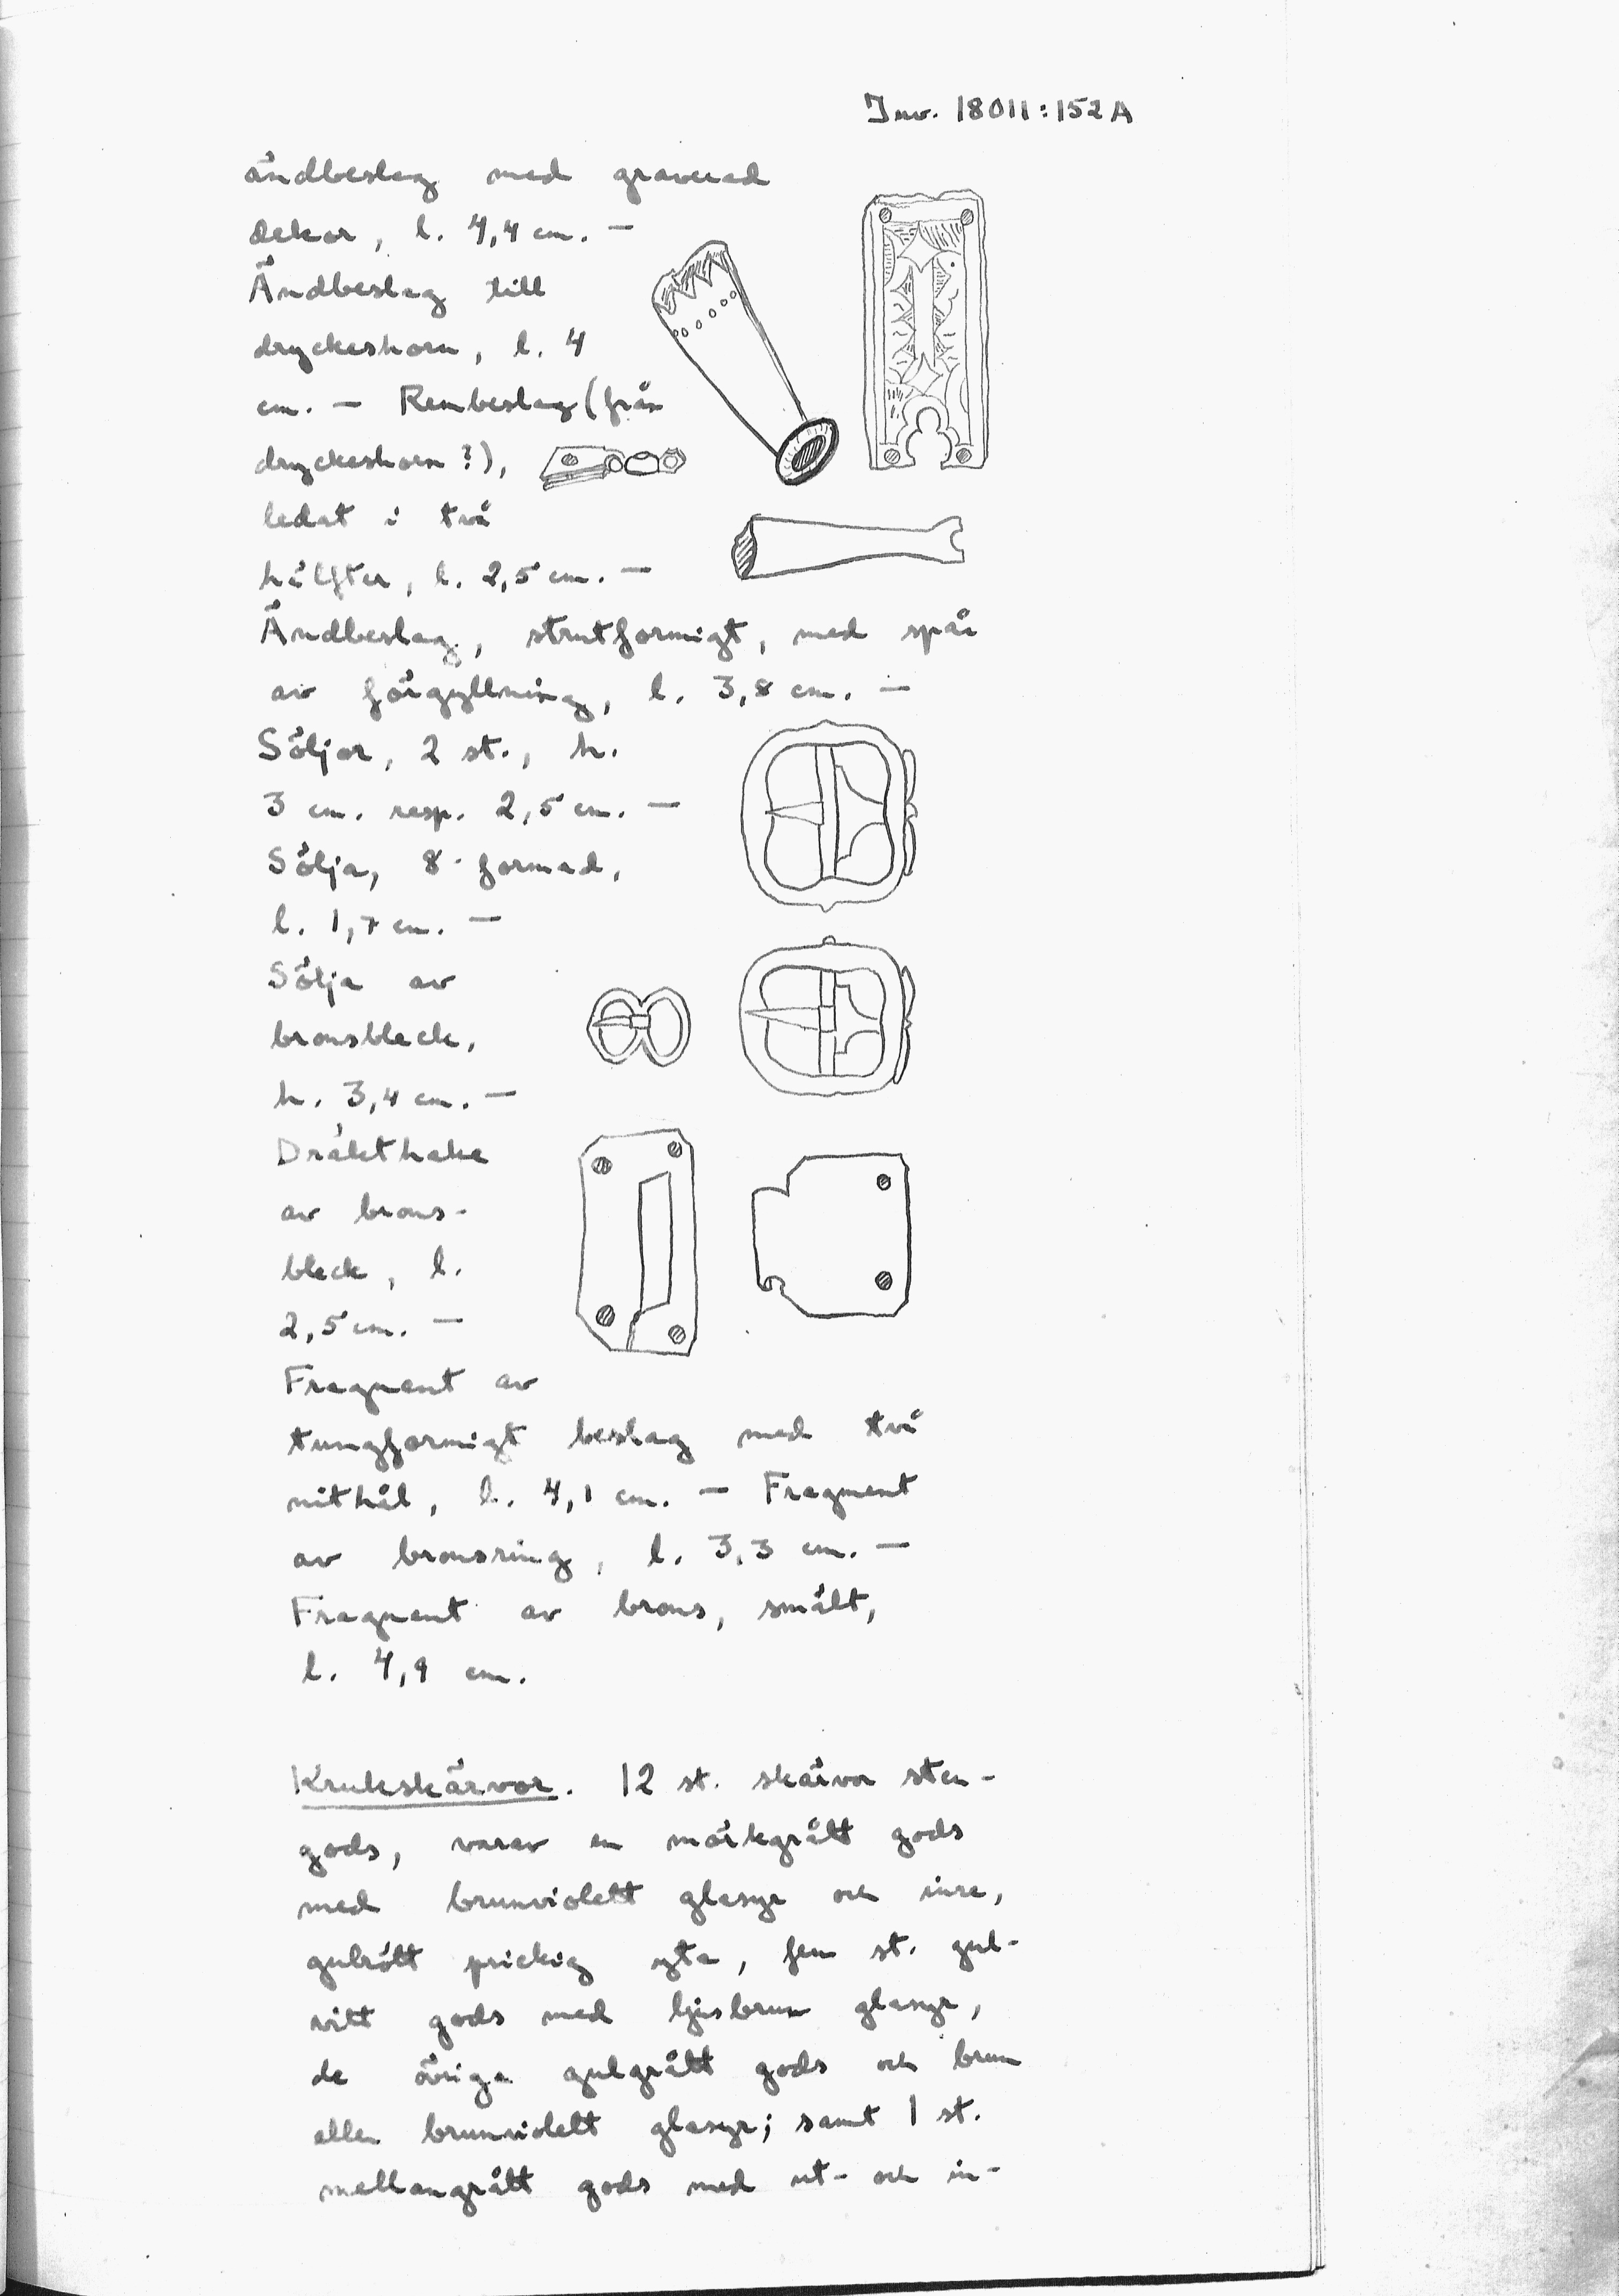 Inv. 18011:152A
ändbeslag med graverad
dekor, l. 4,4 cm. —
Ändbeslag till
dryckeshorn, l. 4
cm. — Rembeslag (från
dryckeshorn?),
ledat i två
hälfter, l. 2,5 cm. —
Ändbeslag, strutformigt, med spår
av förgyllning, l. 3,8 cm. —
Söljor, 2 st., h.
3 cm. resp. 2,5 cm. —
Sölja, 8-formad,
l. 1,7 cm. —
Sölja av
bronsbleck,
h. 3,4 cm. —
Dräkthake
av brons-
bleck, l.
2,5 cm. —
Fragment av
tungformigt beslag med två
nithål, l. 4,1 cm. — Fragment
av bronsring, l. 3,3 cm. —
Fragment av brons, smält,
l. 4,9 cm.
Krukskärvor. 12 st. skärvor sten-
gods, varav en mörkgrått gods
med brunviolett glasyr och inre,
gulrött prickig yta, fem st. gul-
vitt gods med ljusbrun glasyr,
de övriga gulgrått gods och brun
eller brunviolett glasyr; samt 1 st.
mellangrått gods med ut- och in-